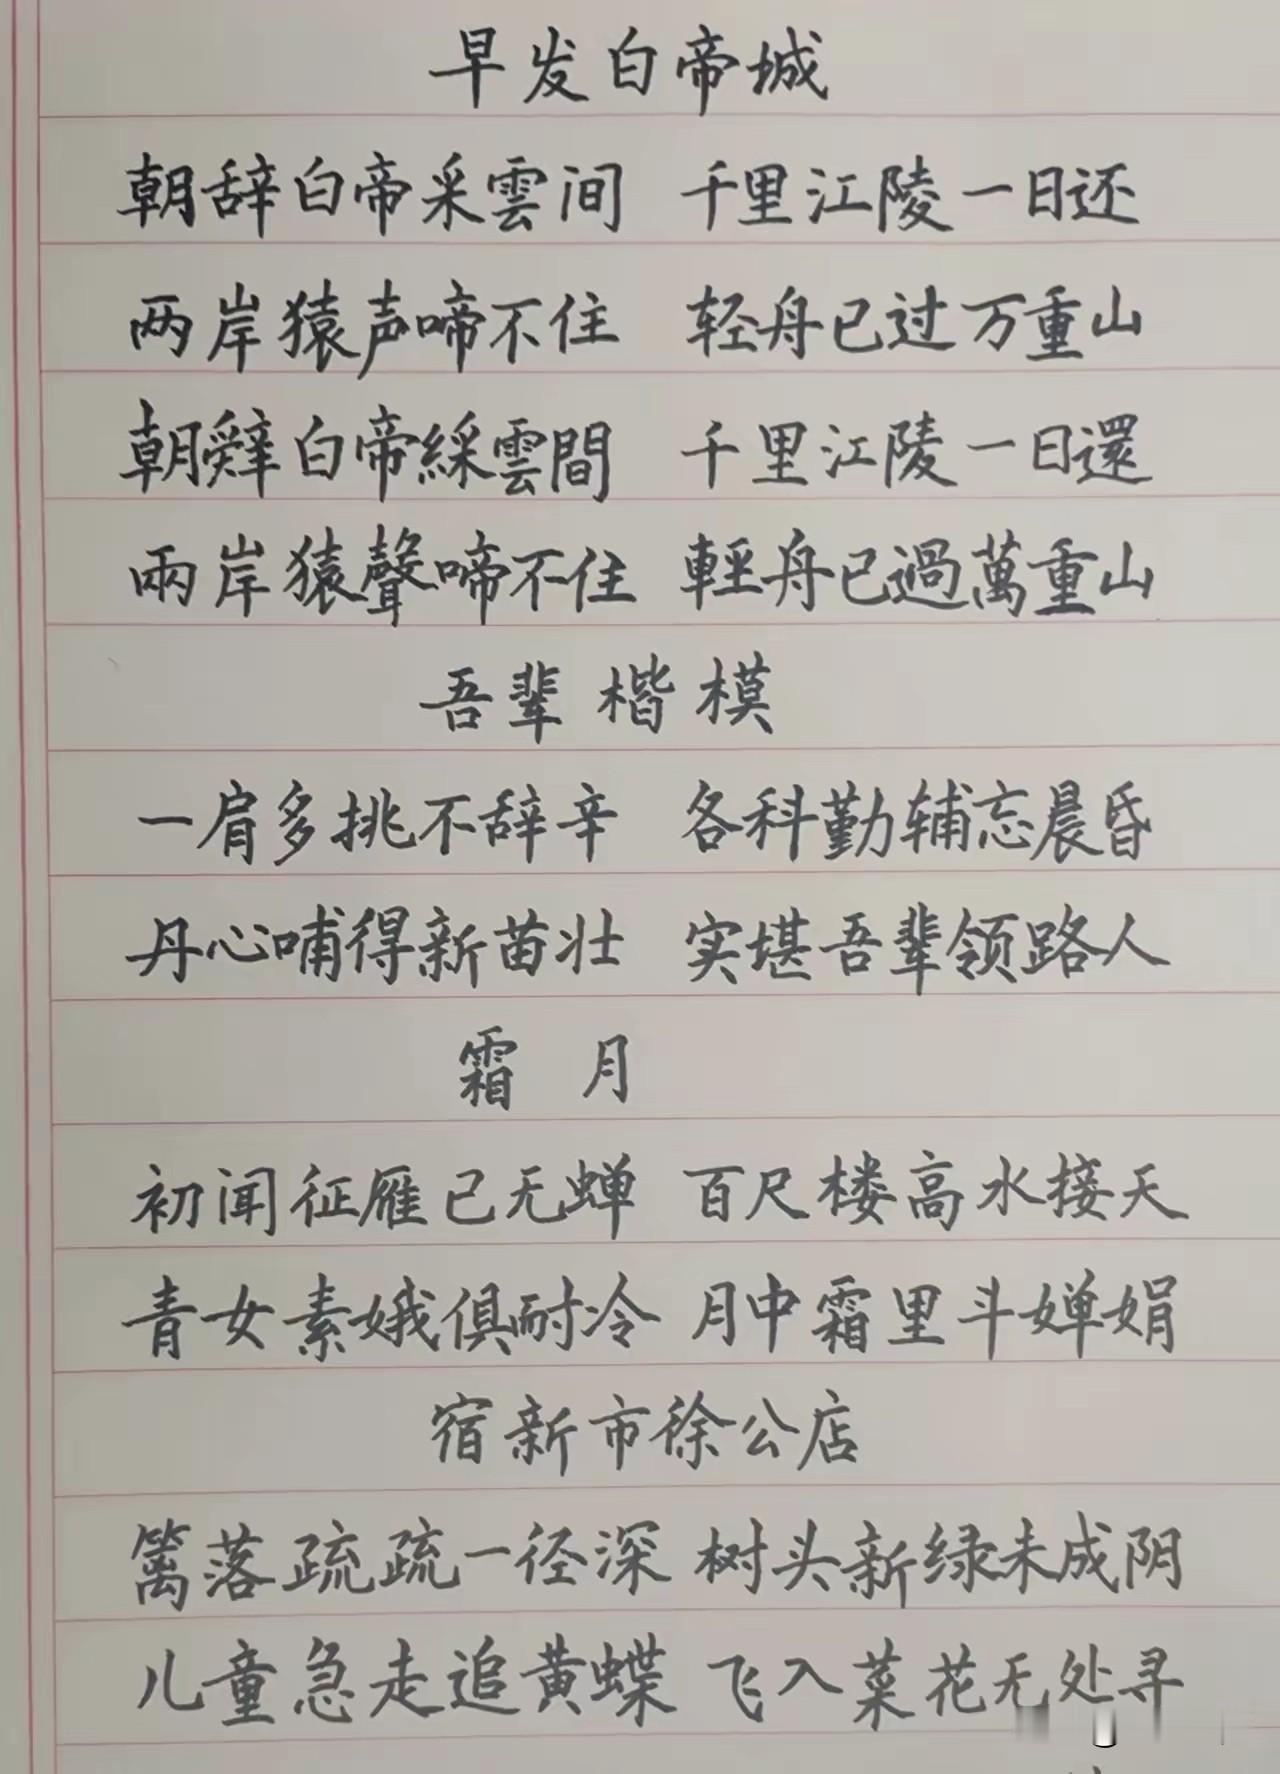 早发白帝城
朝辞白帝采雲间 千里江陵一日还
两岸猿声啼不住 轻舟已过万重山
朝辤白帝綵雲間 千里江陵一日還
兩岸猿聲啼不住 輕舟已過萬重山
吾辈楷模
一肩多挑不辞辛 各科勤辅忘晨昏
丹心哺得新苗壮 实堪吾辈领路人
霜 月
初闻征雁已无蝉 百尺楼高水接天
青女素娥俱耐冷 月中霜里斗婵娟
宿新市徐公店
篱落疏疏一径深 树头新绿未成阴
儿童急走追黄蝶 飞入菜花无处寻